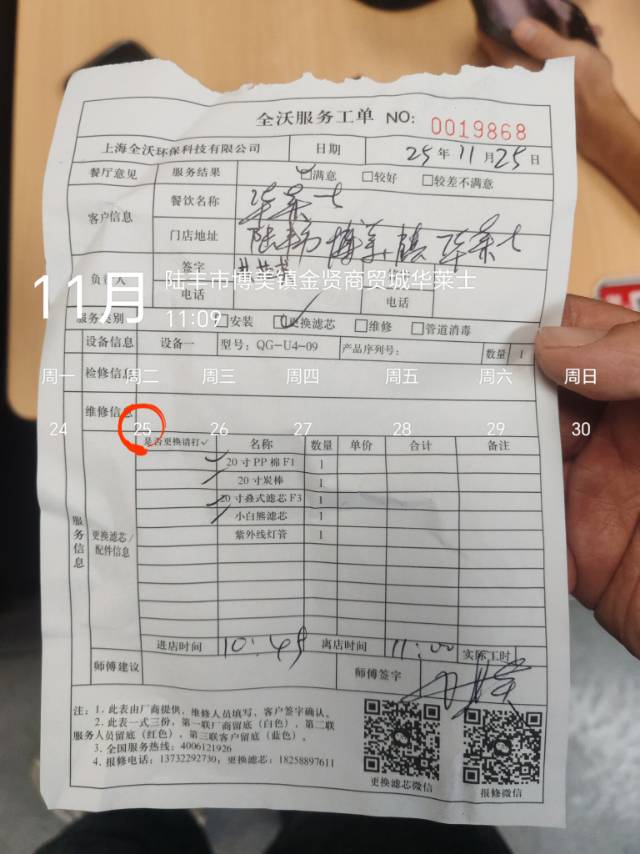 全沃服务工单 NO: 0019868
上海全沃环保科技有限公司 日期 25年11月25日
餐厅意见 服务结果 ☑满意 □较好 □较差不满意
客户信息 餐饮名称 华莱士
门店地址 陆丰市博美镇华莱士
负责人 签字 签字
电话 电话
11月 陆丰市博美镇金贤商贸城华莱士
11:09
服务类别 □安装 ☑更换滤芯 □维修 □管道消毒
设备信息 设备一 型号: QG-U4-09 产品序列号: 数量 1
检修信息
周一 周二 周三 周四 周五 周六 周日
维修信息
24 25 26 27 28 29 30
服务信息 更换滤芯/配件信息
是否更换请打✓ 名称 数量 单价 合计 备注
✓ 20寸PP棉F1 1
✓ 20寸炭棒 1
✓ 20寸叠式滤芯F3 1
✓ 小白熊滤芯 1
紫外线灯管 1
进店时间 10:45 离店时间 11:00 实际工时
师傅建议 师傅签字
注: 1. 此表由厂商提供, 维修人员填写, 客户签字确认。
2. 此表一式三份, 第一联厂商留底 (白色), 第二联
服务人员留底 (红色), 第三联客户留底 (蓝色)。
3. 全国服务热线: 4006121926
4. 报修电话: 13732292730, 更换滤芯: 18258897611
更换滤芯微信 报修微信